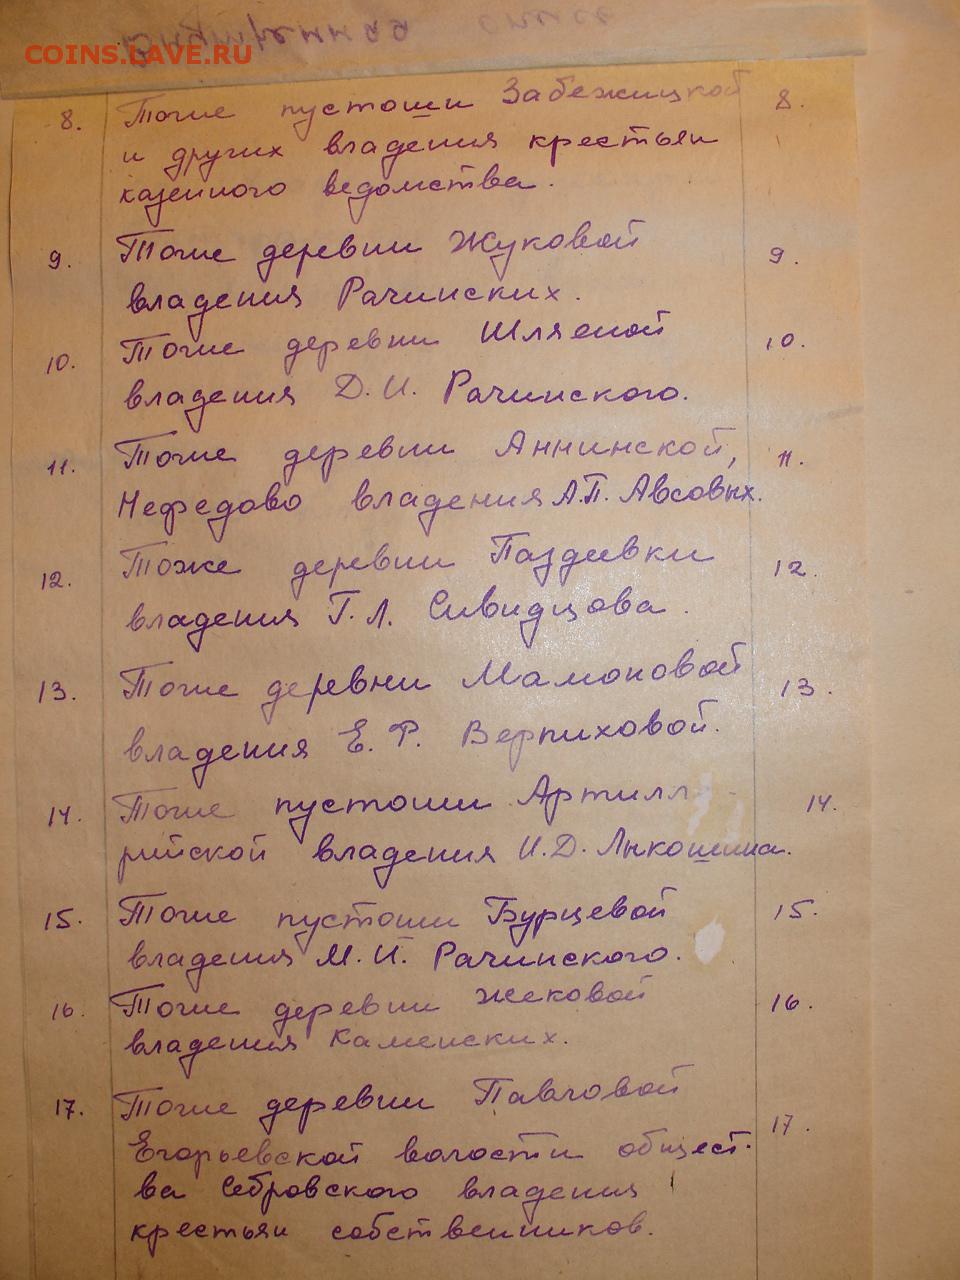 Внутренная опись
COINS.LAVE.RU
8. Тоже пустоши Забежицкой 8.
и других владения крестьян
казенного ведомства.
9. Тоже деревни Жуковой 9.
владения Рачинских.
10. Тоже деревни Шляеной 10.
владения Д. И. Рачинского.
11. Тоже деревни Аннинской, 11.
Нефедово владения А.П. Авсовых.
12. Тоже деревни Паздеевки 12.
владения Г. Л. Сивидцова.
13. Тоже деревни Мамоновой 13.
владения Е. Р. Верпиховой.
14. Тоже пустоши Артилл- 14.
рийской владения И. Д. Лыкошина.
15. Тоже пустоши Бурцевой 15.
владения М. И. Рачинского.
16. Тоже деревни Жековой 16.
владения Каменских.
17. Тоже деревни Павловой 17.
Егорьевской волости общест-
ва Себровского владения
крестьян собственников.